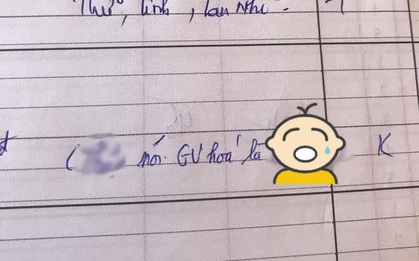 Thư, Linh, Lan Nhi.
( nói GV hoá là K